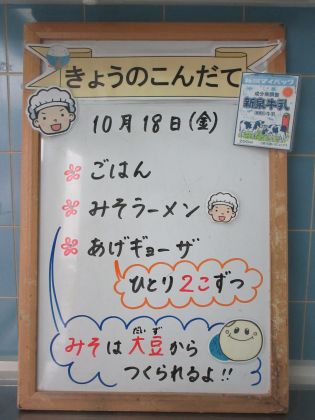 きょうのこんだて
10月18日(金)
新泉牛乳
ごはん
みそラーメン
あげギョーザ
ひとり2こずつ
みそは大豆から
だいず
つくられるよ!!